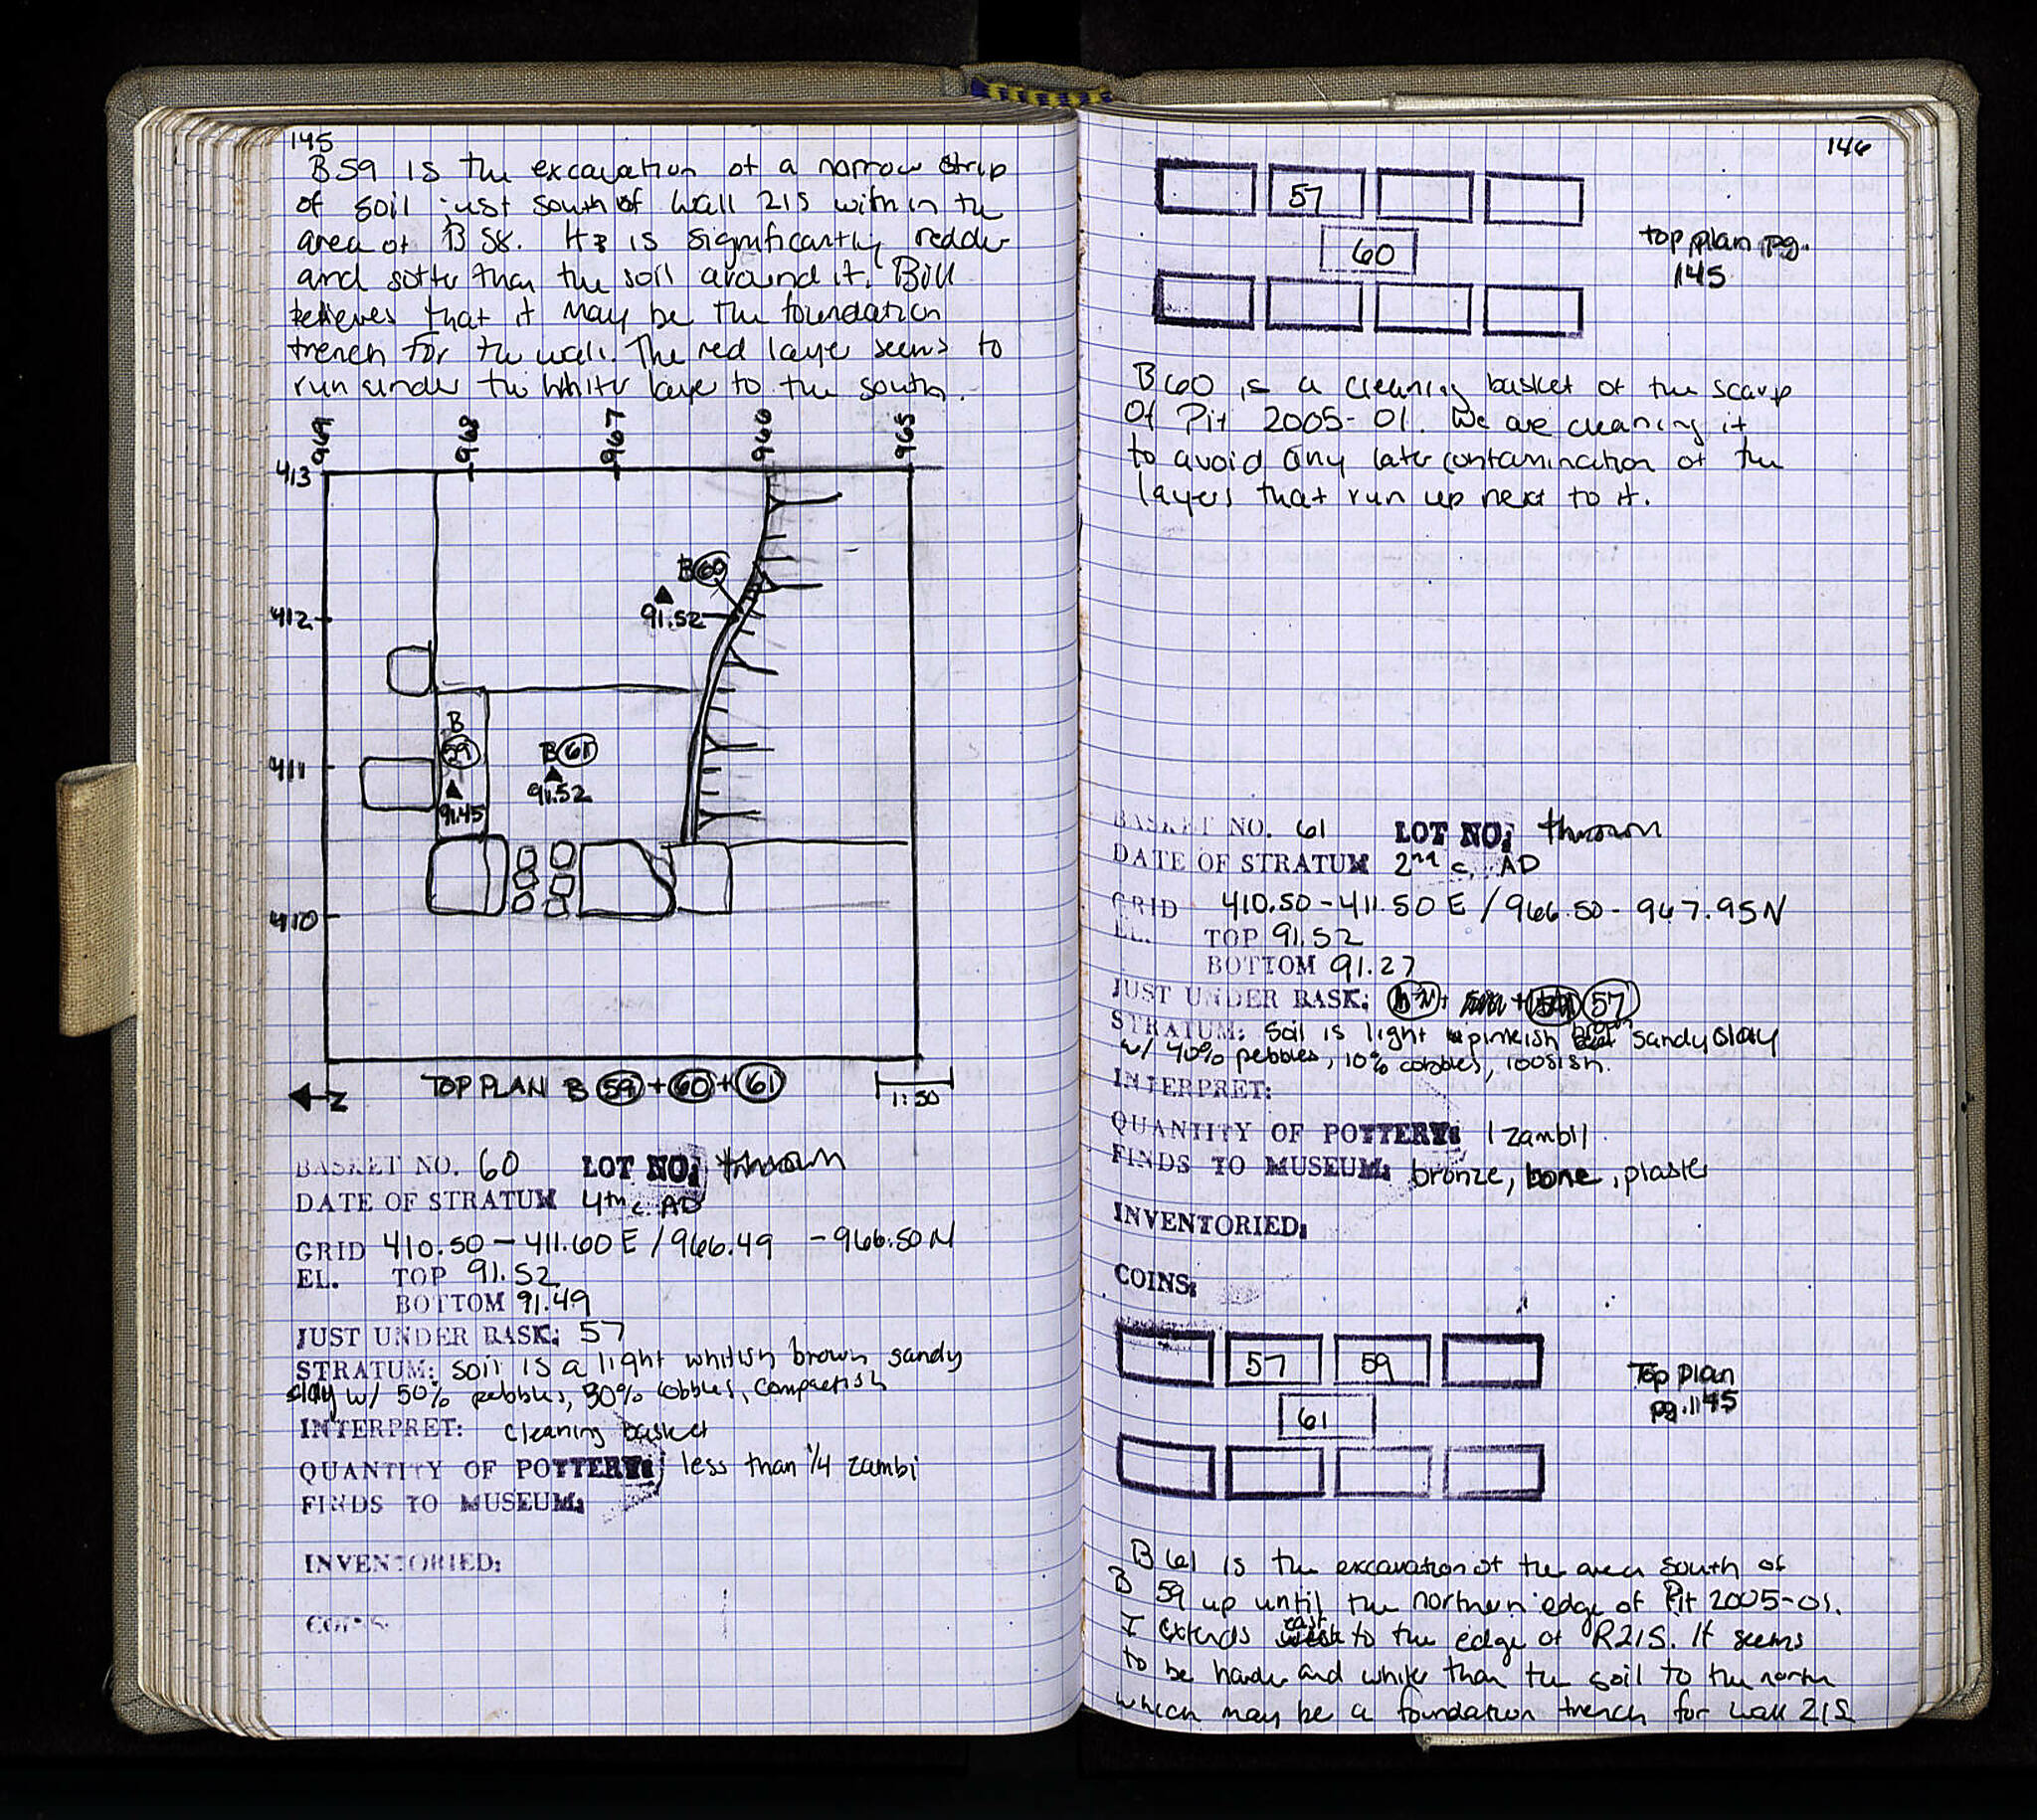 145
B59 is the excavation of a narrow strip
of soil just south of wall 215 within the
area of B 58. It is significantly redder
and softer than the soil around it. Bill
believes that it may be the foundation
trench for the wall. The red layer seems to
run under the white layer to the south.
969 968 967 966 965
413
B 60
412
91.52
B
59
B 61
411
91.45
91.52
410
N
TOP PLAN B 59 + 60 + 61
1:50
BASKET NO. 60 LOT NO: thrown
DATE OF STRATUM 4th c. AD
GRID 410.50 - 411.60 E / 966.49 - 966.50 N
EL. TOP 91.52
BOTTOM 91.49
JUST UNDER BASK: 57
STRATUM: soil is a light whitish brown sandy
clay w/ 50% pebbles, 30% cobbles, compactish
INTERPRET: cleaning basket
QUANTITY OF POTTERY: less than 1/4 zambi
FINDS TO MUSEUM:
INVENTORIED:
COINS
146
57
60
top plan pg.
145
B60 is a cleaning basket of the scarp
of Pit 2005-01. We are cleaning it
to avoid any later contamination of the
layers that run up next to it.
BASKET NO. 61 LOT NO: thrown
DATE OF STRATUM 2nd c. AD
GRID 410.50 - 411.50 E / 966.50 - 967.95 N
EL. TOP 91.52
BOTTOM 91.27
JUST UNDER BASK: 57
STRATUM: soil is light pinkish sandy clay
w/ 40% pebbles, 10% cobbles, loosish.
INTERPRET:
QUANTITY OF POTTERY: 1 zambil
FINDS TO MUSEUM: bronze, bone, plaster
INVENTORIED:
COINS:
57 59
61
Top plan
pg. 145
B 61 is the excavation of the area south of
B 59 up until the northern edge of Pit 2005-01.
I extends east to the edge of R215. It seems
to be harder and whiter than the soil to the north
which may be a foundation trench for wall 215